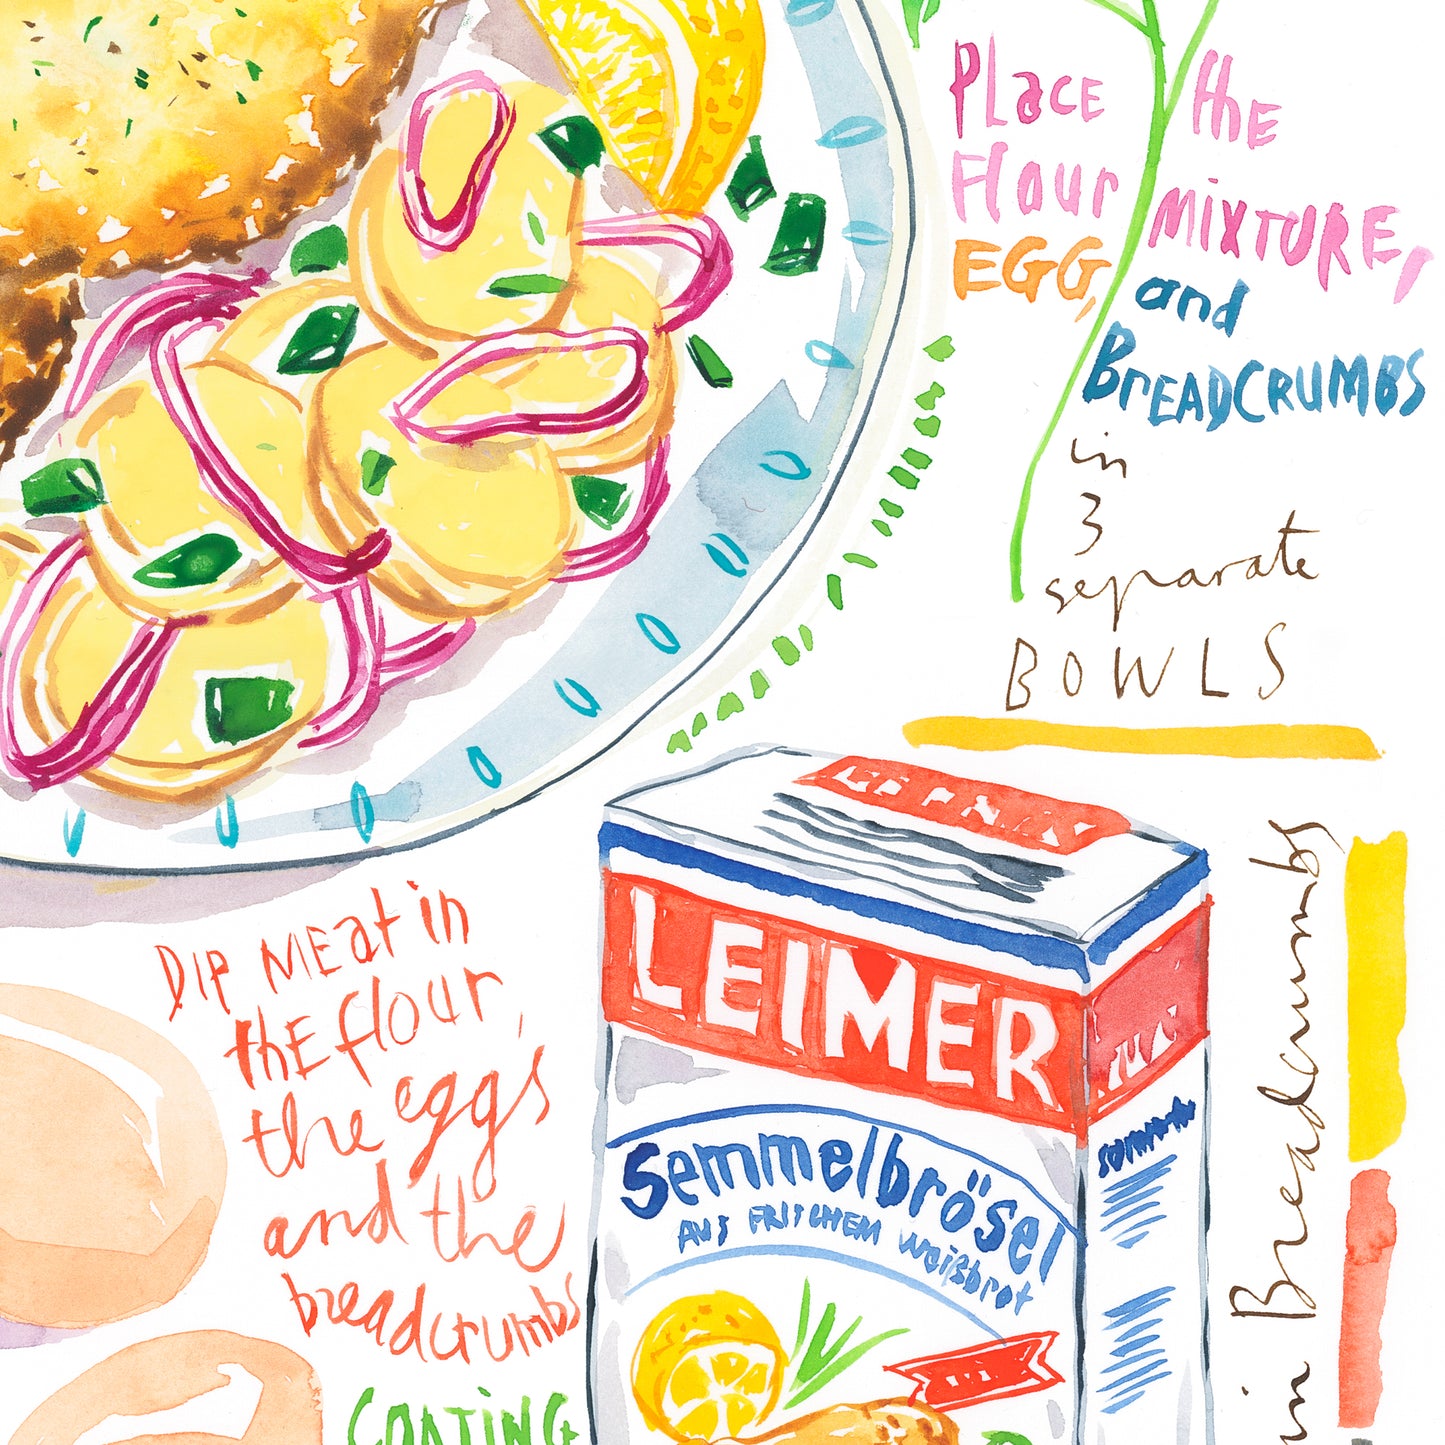 PLACE the
Flour MIXTURE,
EGG, and
BREADCRUMBS
in
3
separate
BOWLS
DIP MEAT in
thE flour,
the eggs
and the
breadcrumbs
COATING
LEIMER
Semmelbrösel
AUS FRISCHEM Weißbrot
in Breadcrumbs